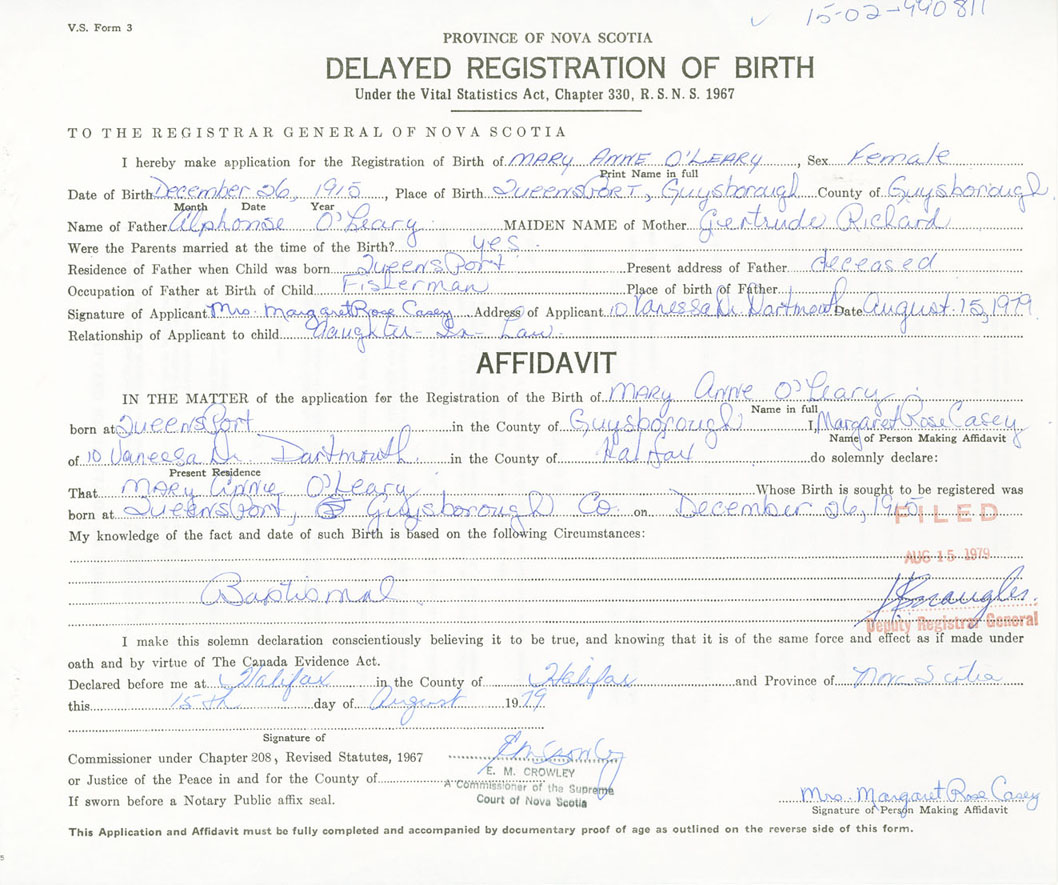 V.S. Form 3
15-02-990811
PROVINCE OF NOVA SCOTIA
DELAYED REGISTRATION OF BIRTH
Under the Vital Statistics Act, Chapter 330, R.S.N.S. 1967
TO THE REGISTRAR GENERAL OF NOVA SCOTIA
I hereby make application for the Registration of Birth of MARY ANNE O'LEARY, Sex Female
Print Name in full
Date of Birth December 26, 1915, Place of Birth QueensPORT, Guysborough County of Guysborough
Month Date Year
Name of Father Alphonse O'Leary MAIDEN NAME of Mother Gertrude Richard
Were the Parents married at the time of the Birth? yes.
Residence of Father when Child was born QueensPort Present address of Father deceased
Occupation of Father at Birth of Child Fisherman Place of birth of Father
Signature of Applicant Mrs. Margaret Rose Casey Address of Applicant 10 Vanessa Dr. Dartmouth Date August 15, 1979
Relationship of Applicant to child daughter-In-Law
AFFIDAVIT
IN THE MATTER of the application for the Registration of the Birth of MARY Anne O'Leary
Name in full
born at QueensPort in the County of Guysborough I, Margaret Rose Casey
Name of Person Making Affidavit
of 10 Vanessa Dr. Dartmouth in the County of Halifax do solemnly declare:
Present Residence
That MARY Anne O'Leary Whose Birth is sought to be registered was
born at QueensPort, Guysborough Co. on December 26, 1915
FILED
My knowledge of the fact and date of such Birth is based on the following Circumstances:
AUG 15 1979
Baptismal
Deputy Registrar General
I make this solemn declaration conscientiously believing it to be true, and knowing that it is of the same force and effect as if made under
oath and by virtue of The Canada Evidence Act.
Declared before me at Halifax in the County of Halifax and Province of Nova Scotia
this 15th day of August 1979
Signature of
Commissioner under Chapter 208, Revised Statutes, 1967
E. M. CROWLEY
or Justice of the Peace in and for the County of
A Commissioner of the Supreme
Court of Nova Scotia
If sworn before a Notary Public affix seal.
Mrs. Margaret Rose Casey
Signature of Person Making Affidavit
This Application and Affidavit must be fully completed and accompanied by documentary proof of age as outlined on the reverse side of this form.